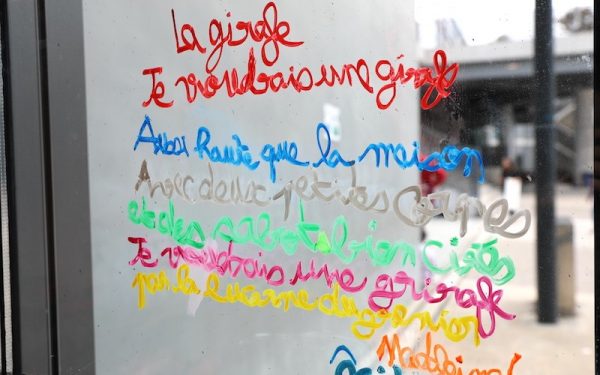 La girafe
Je voudrais une girafe
Aussi haute que la maison
Avec deux petites cornes
et des sabots bien cirés
Je voudrais une grirafe
par la lucarne du grenier
Madeleine